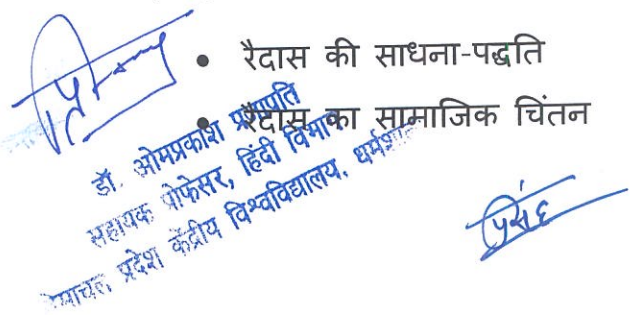 • रैदास की साधना-पद्धति
• रैदास का सामाजिक चिंतन
डॉ. ओमप्रकाश प्रजापति
सहायक प्रोफेसर, हिंदी विभाग
हिमाचल प्रदेश केंद्रीय विश्वविद्यालय, धर्मशाला